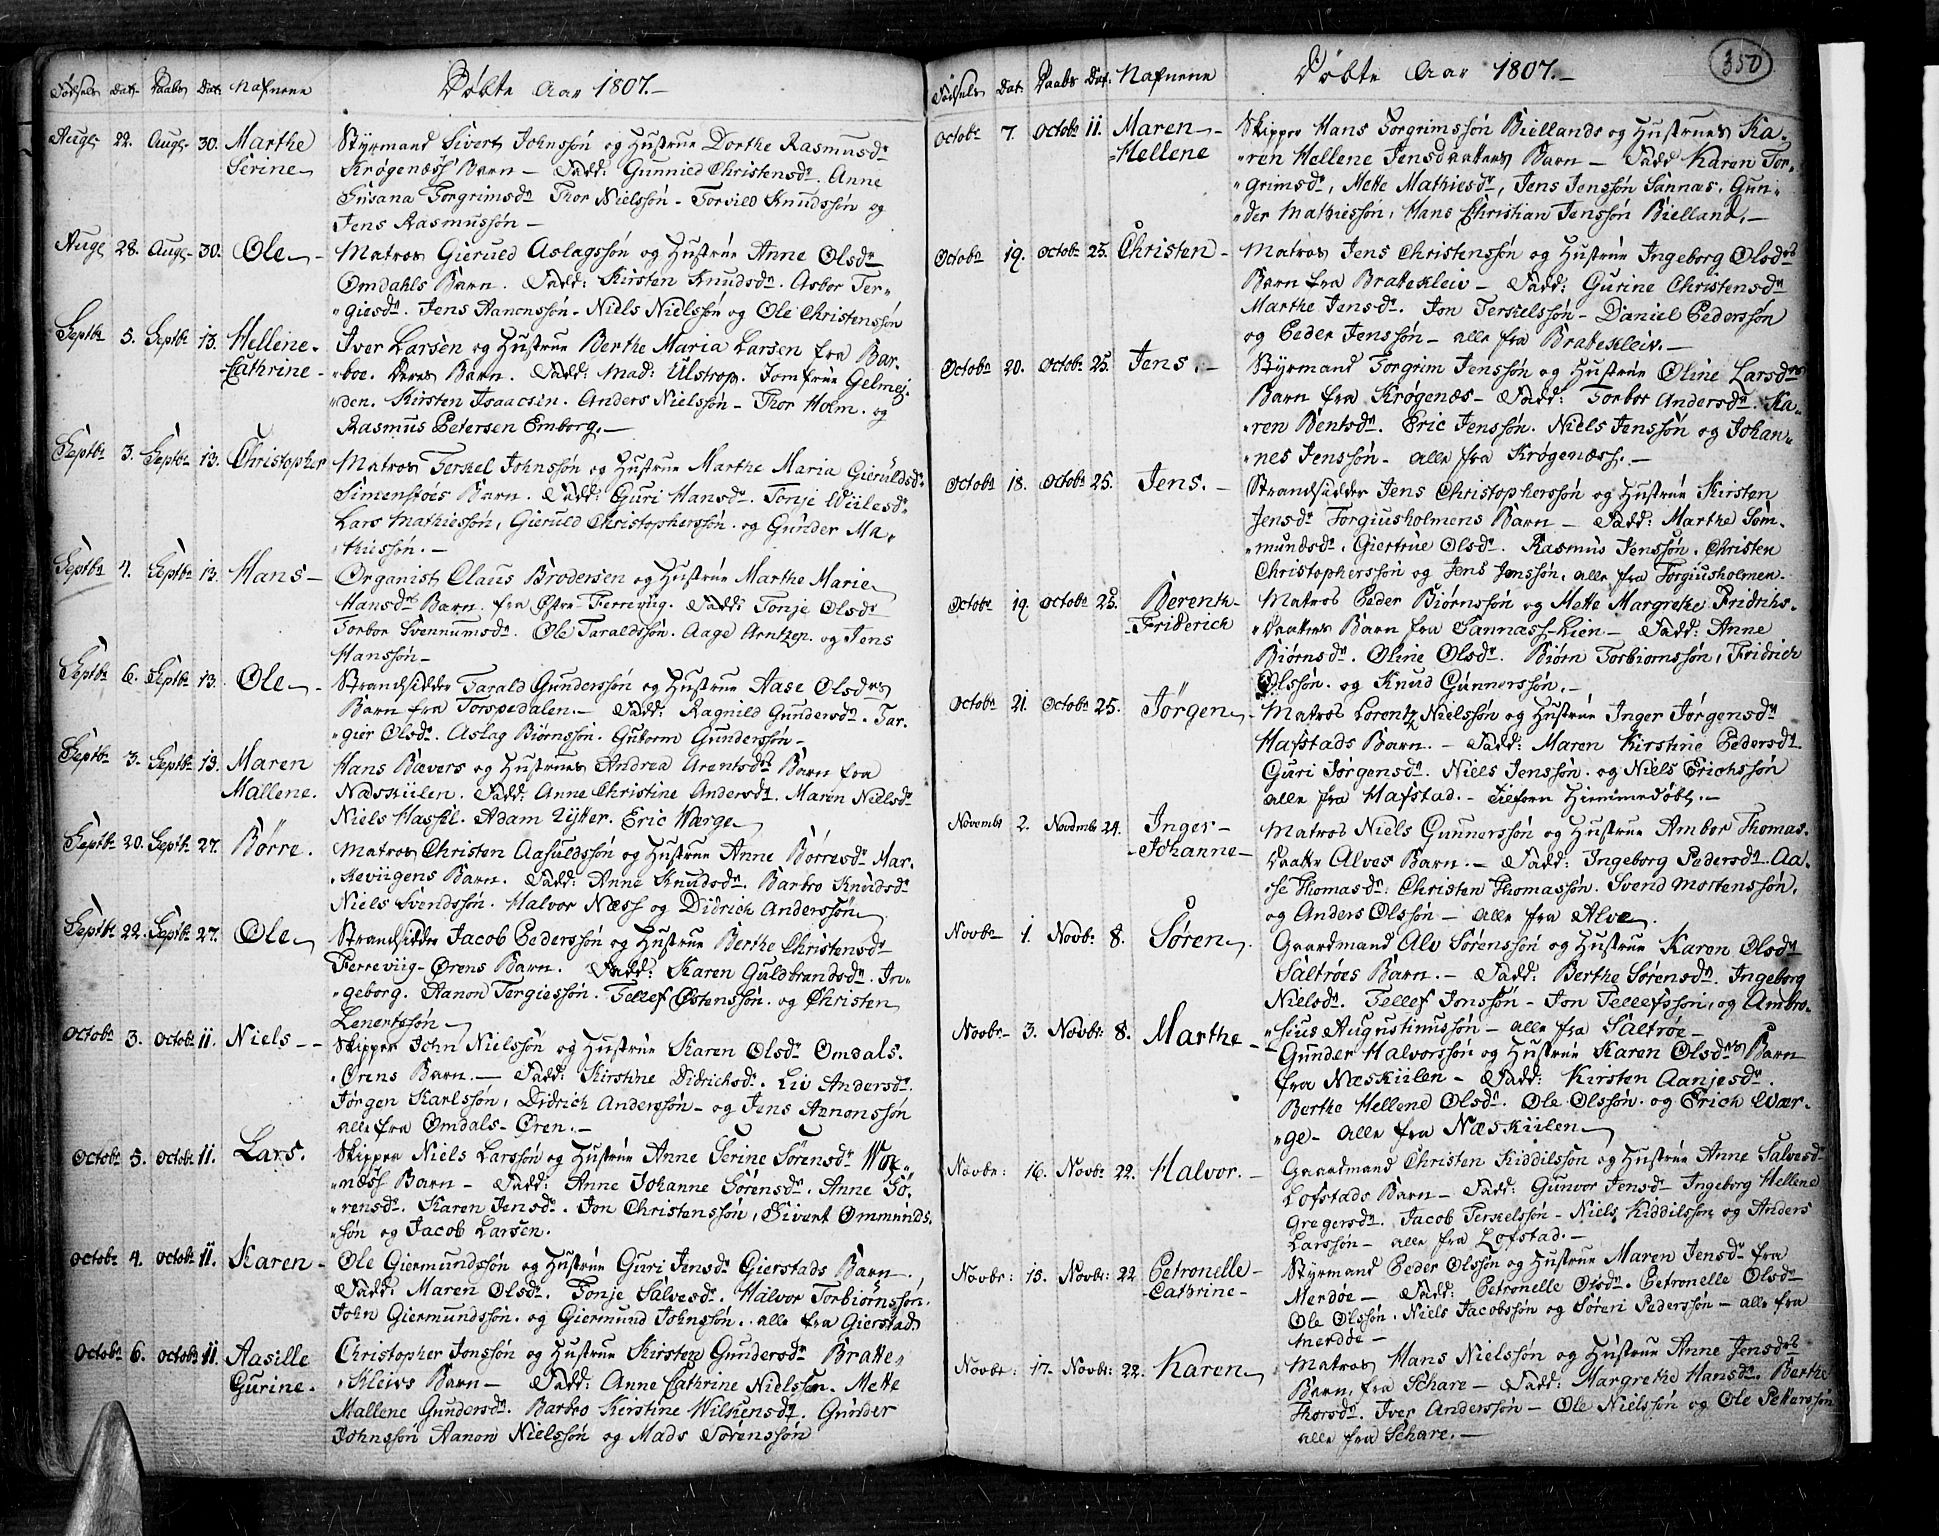 Fødsels Dat: Daabs Dat: Nafnene Døbte Aar 1807.-
Aug: 22. Aug: 30. Marthe Serine Styrmand Sivert Johnssøn og Hustrue Dorthe Rasmusdr
Krøgenæss Barn - Fadd: Gunnild Christensdr. Anne
Susana Torgrimsdr Thor Nielssøn - Torvild Knudssøn og
Jens Rasmussøn -
Aug: 28. Aug: 30. Ole Matros Gieruld Aslagssøn og Hustrue Anne Olsdr
Omdahls Barn. Fadd: Kirsten Knudsdr. Asbor Ter-
giesdr. Jens Aanonssøn - Niels Nielssøn og Ole Christenssøn
Septbr 5. Septbr 13. Hellene Cathrine Iver Larsen og Hustrue Berthe Maria Larsen fra Bar-
boe. Deres Barn. Fadd: Mad: Ulstrop. Jomfrue Gelmej-
den. Kirsten Isaacsin. Anders Nielssøn - Thor Holm. og
Rasmus Petersen Emborg.
Septbr 3. Septbr 13. Christopher Matros Terkel Johnssøn og Hustrue Marthe Maria Gieruldsdr
Simenstøes Barn. Fadd: Guri Hansdr. Tonje Wiilesdr
Lars Mathiessøn, Gieruld Christopherssøn. og Gunder Ma-
thiessøn. -
Septbr 4. Septbr 13. Hans Organist Claus Brodersen og Hustrue Marthe Marie
Hansdr Barn. fra Østre Ferreviig. Fadd: Tonje Olsdr
Torbor Svennumsdr. Ole Taraldssøn. Aage Arntzen. og Jens
Hanssøn -
Septbr 6. Septbr 13. Ole Strandsidder Tarald Gunderssøn og Hustrue Aase Olsdrs
Barn fra Torspedalen. - Fadd: Ragnild Gundersdr. Tar-
gier Olsdr. Aslag Biørnssøn. Gutorm Gunderssøn -
Septbr 3. Septbr 13. Maren Mallene. Hans Bævers og Hustrues Andrea Arentsdrs Barn fra
Nædskiilen. Fadd: Anne Christine Andersdr. Maren Nielsdr
Niels Hassel. Adam Rytter. Eric Wærge
Septbr 20. Septbr 27. Børre. Matros Christen Aasuldssøn og Hustrue Anne Børresdr Nar-
reviigens Barn. Fadd: Anne Knudsdr. Barbro Knudsdr
Niels Svendssøn. Halvor Næss og Didrich Anderssøn
Septbr 22. Septbr 27. Ole Strandsidder Jacob Pederssøn og Hustrue Berthe Christensdr
Ferreviig-Ørens Barn. Fadd: Karen Guldbrandsdr. In-
geborg. Aanon Tergiessøn. Tellef Østenssøn. og Christen
Lenertssøn
Octobr 3. Octobr 11. Niels - Skipper John Nielssøn og Hustrue Karen Olsdr Omdals-
Ørens Barn. - Fadd: Kirstine Didrichsdr. Liv Andersdr.
Jørgen Karlssøn, Didrich Anderssøn - og Jens Aanonssøn
alle fra Omdals-Øren. -
Octobr 5. Octobr 11. Lars. Skipper Niels Larssøn og Hustrue Anne Serine Sørensdr
næss Barn - Fadd: Anne Johanne Sørensdr. Anne Sø-
rensdr. Karen Jensdr. Jon Christenssøn, Sivert Ommunds-
søn og Jacob Larsen.
Octobr 4. Octobr 11. Karen - Ole Giermundssøn og Hustrue Guri Jensdr Gierstads Barn
Fadd: Maren Olsdr. Tonje Salvesdr. Halvor Torbiørnssøn.
John Giermundssøn. og Giermund Johnssøn. alle fra Gierstad
Octobr 6. Octobr 11. Aasille Gurine. Christopher Jonssøn og Hustrue Kirsten Gundersdr Bratte-
kleivs Barn - Fadd: Anne Cathrine Nielssøn. Mette
Mallene Gundersdr. Barbro Kirstine Wilkensdr. Gunder
Johnssøn Aanon Nielssøn og Mads Sørenssøn
350
Fødsels Dat: Daabs Dat: Nafnene Døbte Aar 1807.-
Octobr 7. Octobr 11. Maren Hellene Skipper Hans Torgrimssøn Biellands og Hustrues Ka-
ren Hellene Jensdatters Barn - Fadd Karen Tor-
grimsdr, Mette Mathiesdr, Jens Jenssøn Sannas. Gun-
der Mathiessøn, Hans Christian Jenssøn Bielland. -
Octobr 19. Octobr 25. Christen - Matros Jens Christenssøn og Hustrue Ingeborg Olsdrs
Barn fra Brattekleiv - Fadd: Gurine Christensdr
Marthe Jensdr. Jon Terkelssøn - Daniel Pederssøn
og Peder Jenssøn - alle fra Brattekleiv. -
Octobr 20. Octobr 25. Jens. - Styrmand Torgrim Jenssøn og Hustrue Oline Larsdrs
Barn fra Krøgenæs - Fadd: Torbor Andersdr. Ka-
ren Bentsdr. Eric Jenssøn. Niels Jenssøn og Johan-
nes Jenssøn - alle fra Krøgenæss. -
Octobr 18. Octobr 25. Jens. - Strandsidder Jens Christopherssøn og Hustrue Kirsten
Jensdr Torgiusholmens Barn - Fadd: Marthe Søm-
mundsdr. Giertrue Olsdr. Rasmus Jenssøn. Christen
Christopherssøn og Jens Jenssøn. alle fra Torgiusholmen.
Octobr 19. Octobr 25. Berenth Friderich Matros Peder Biørnssøn og Mette Margrethe Fridrihs-
datters Barn fra Sannass-Lien - Fadd: Anne
Biørnsdr. Oline Olsdr. Biørn Torbiornssøn, Fridrich
Olssøn. og Knud Gunnerssøn. -
Octobr 21. Octobr 25. Jørgen - Matros Lorentz Nielssøn og Hustrue Inger Jørgensdr
Hafstads Barn. - Fadd: Maren Kirstine Pedersdr
Guri Jørgensdr. Niels Jenssøn. og Niels Erichssøn
alle fra Hafstad. - Tilforn Hiemmedøbt. -
Novembr 2. Novembr 24. Inger Johanne - Matros Niels Gunnerssøn og Hustrue Ambor Thomas-
datter Alves Barn. - Fadd: Ingeborg Pedersdr. Aa-
se Thomasdr: Christen Thomassøn. Svend Mortenssøn.
og Anders Olssøn - alle fra Alve.
Novbr 1. Novbr: 8. Søren. Gaardmand Alv Sørenssøn og Hustrue Karen Olsdr
Saltrøes Barn. - Fadd: Berthe Sørensdr. Ingeborg
Nielsdr. Tellef Jonssøn - Jon Tellefssøn, og Ambro-
sius Augustinussøn - alle fra Saltrøe -
Novbr 3. Novbr: 8. Marthe - Gunder Halvorssøn og Hustrue Karen Olsdrs Barn
fra Næskiilen - Fadd: Kirsten Aanjesdr.
Berthe Hellene Olsdr. Ole Olssøn. og Erich Wær-
ge - alle fra Næskiilen
Novbr: 16. Novbr 22. Halvor. - Gaardmand Christen Kiddilssøn og Hustrue Anne Salvesdr
Lofstads Barn - Fadd: Gunvor Jensdr Ingeborg Hellene
Gregersdr. Jacob Terkelssøn - Niels Kiddilssøn og Anders
Larssøn - alle fra Lofstad. -
Novbr: 15. Novbr: 22. Petronelle Cathrine - Styrmand Peder Olssøn og Hustrue Maren Jensdr fra
Merdøe - Fadd: Petronelle Olsdr. Petronelle Olsdr
Ole Olssøn. Niels Jacobssøn og Søren Pederssøn - alle fra
Merdøe -
Novbr: 17. Novbr: 22. Karen Matros Hans Nielssøn og Hustrue Anne Jensdrs
Barn, fra Schare - Fadd: Margrethe Hansdr. Berthe
Thorsdr. Iver Anderssøn - Ole Nielssøn og Ole Petterssøn
alle fra Schare. -